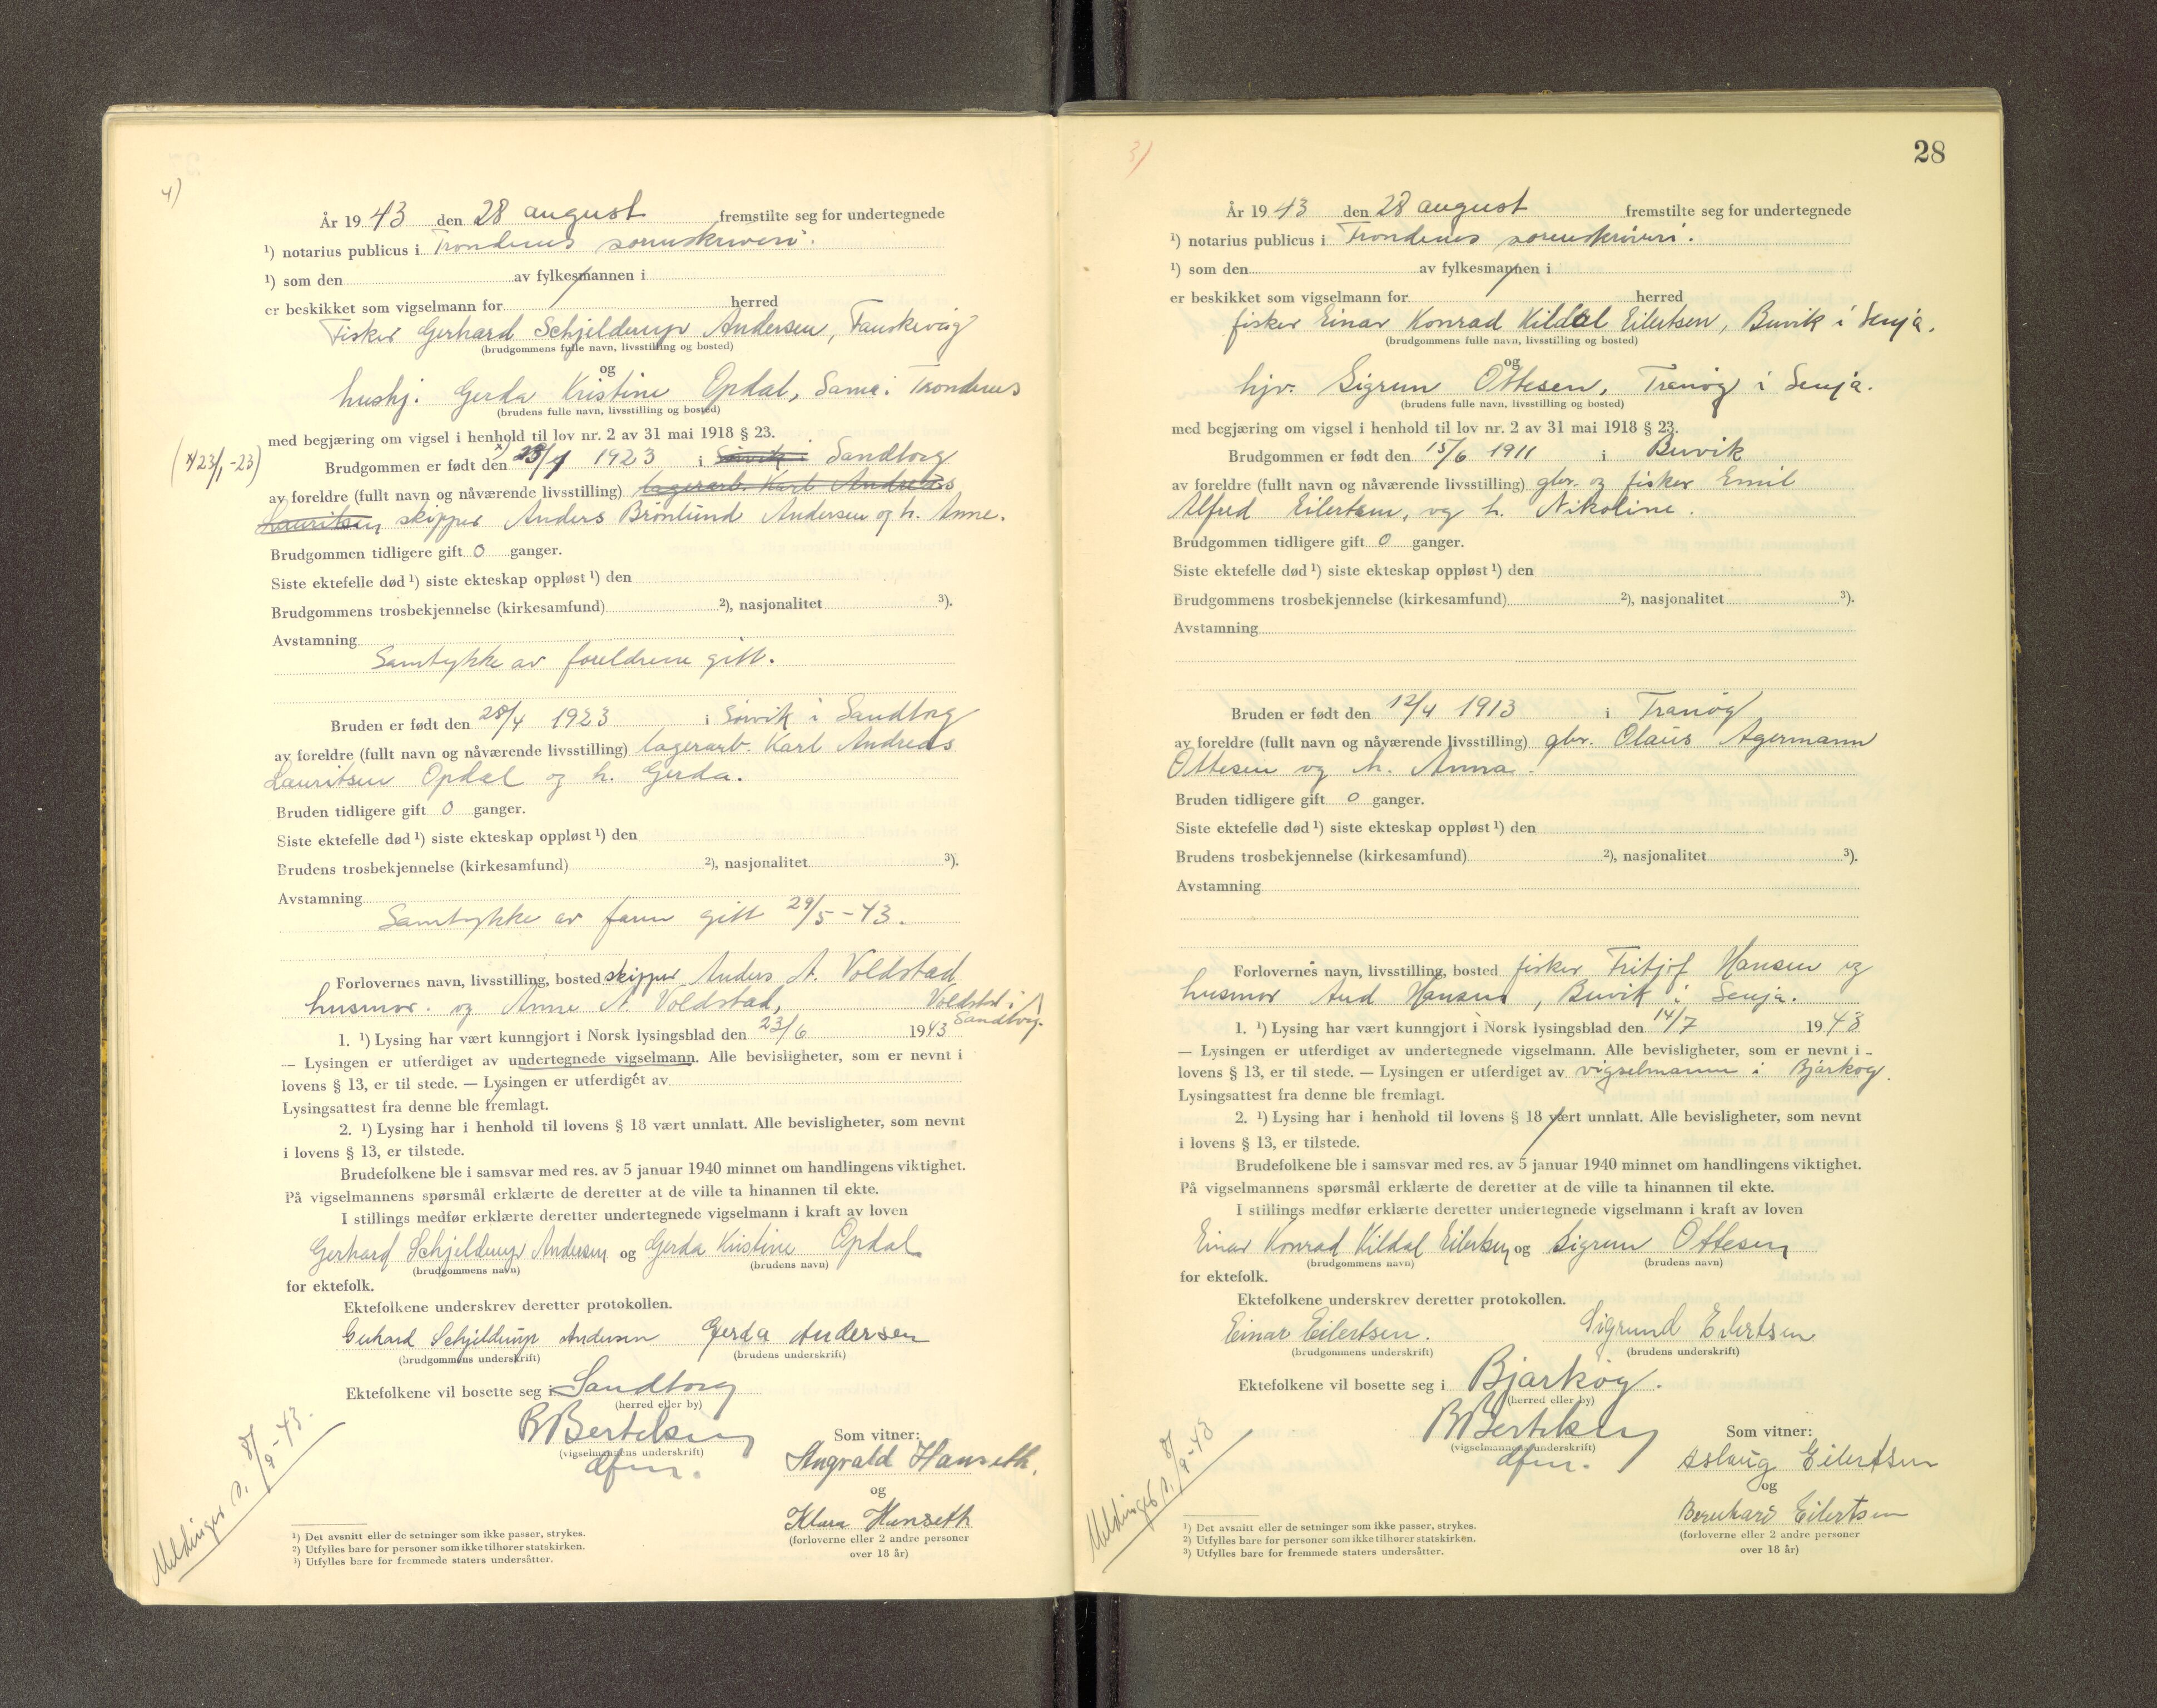 4)
År 1943 den 28 august fremstilte seg for undertegnede
¹) notarius publicus i Trondenes sorenskriveri.
¹) som den av fylkesmannen i
er beskikket som vigselmann for herred
Fisker Gerhard Schjelderup Andersen, Fauskevåg
(brudgommens fulle navn, livsstilling og bosted)
og
hushj. Gerda Kristine Opdal, Sama i Trondenes
(brudens fulle navn, livsstilling og bosted)
med begjæring om vigsel i henhold til lov nr. 2 av 31 mai 1918 § 23.
(x/23/1-23)
Brudgommen er født den x) 23/1 1923 i Sørvik i Sandtorg
av foreldre (fullt navn og nåværende livsstilling) lagerarb. Karl Andreas
Lauritsen skipper Anders Brønlund Andersen og h. Anne.
Brudgommen tidligere gift 0 ganger.
Siste ektefelle død ¹) siste ekteskap oppløst ¹) den
Brudgommens trosbekjennelse (kirkesamfund) ²), nasjonalitet ³).
Avstamning
Samtykke av foreldrene gitt.
Bruden er født den 28/4 1923 i Sørvik i Sandtorg
av foreldre (fullt navn og nåværende livsstilling) lagerarb. Karl Andreas
Lauritsen Opdal og h. Gerda.
Bruden tidligere gift 0 ganger.
Siste ektefelle død ¹) siste ekteskap oppløst ¹) den
Brudens trosbekjennelse (kirkesamfund) ²), nasjonalitet ³).
Avstamning
Samtykke av faren gitt 29/5-43.
Forlovernes navn, livsstilling, bosted skipper Anders A. Voldstad
husmor og Anne A. Voldstad, Voldstad i
Sandtorg.
1. ¹) Lysing har vært kunngjort i Norsk lysingsblad den 23/6 1943
— Lysingen er utferdiget av undertegnede vigselmann. Alle bevisligheter, som er nevnt i
lovens § 13, er til stede. — Lysingen er utferdiget av
Lysingsattest fra denne ble fremlagt.
2. ¹) Lysing har i henhold til lovens § 18 vært unnlatt. Alle bevisligheter, som nevnt
i lovens § 13, er tilstede.
Brudefolkene ble i samsvar med res. av 5 januar 1940 minnet om handlingens viktighet.
På vigselmannens spørsmål erklærte de deretter at de ville ta hinannen til ekte.
I stillings medfør erklærte deretter undertegnede vigselmann i kraft av loven
Gerhard Schjelderup Andersen og Gerda Kristine Opdal
(brudgommens navn) (brudens navn)
for ektefolk.
Ektefolkene underskrev deretter protokollen.
Gerhard Schjelderup Andersen Gerda Andersen
(brudgommens underskrift) (brudens underskrift)
Ektefolkene vil bosette seg i Sandtorg
(herred eller by)
B Bertelsen
(vigselmannens underskrift)
dfm.
Som vitner:
Ingvald Hanseth.
og
Klara Hanseth
(forloverne eller 2 andre personer
over 18 år)
Meldinger s. 8/9-43.
¹) Det avsnitt eller de setninger som ikke passer, strykes.
²) Utfylles bare for personer som ikke tilhører statskirken.
³) Utfylles bare for fremmede staters undersåtter.
28
3)
År 1943 den 28 august fremstilte seg for undertegnede
¹) notarius publicus i Trondenes sorenskriveri.
¹) som den av fylkesmannen i
er beskikket som vigselmann for herred
fisker Einar Konrad Kildal Eilertsen, Buvik i Senja.
(brudgommens fulle navn, livsstilling og bosted)
og
hjv. Sigrun Ottesen, Tranøy i Senja.
(brudens fulle navn, livsstilling og bosted)
med begjæring om vigsel i henhold til lov nr. 2 av 31 mai 1918 § 23.
Brudgommen er født den 15/6 1911 i Buvik
av foreldre (fullt navn og nåværende livsstilling) gbr. og fisker Emil
Alfred Eilertsen, og h. Nikoline.
Brudgommen tidligere gift 0 ganger.
Siste ektefelle død ¹) siste ekteskap oppløst ¹) den
Brudgommens trosbekjennelse (kirkesamfund) ²), nasjonalitet ³).
Avstamning
Bruden er født den 12/4 1913 i Tranøy
av foreldre (fullt navn og nåværende livsstilling) gbr. Olaus Agermann
Ottesen og h. Anna.
Bruden tidligere gift 0 ganger.
Siste ektefelle død ¹) siste ekteskap oppløst ¹) den
Brudens trosbekjennelse (kirkesamfund) ²), nasjonalitet ³).
Avstamning
Forlovernes navn, livsstilling, bosted fisker Fritjof Hansen og
husmor Aud Hansen, Buvik i Senja.
1. ¹) Lysing har vært kunngjort i Norsk lysingsblad den 14/7 1943
— Lysingen er utferdiget av undertegnede vigselmann. Alle bevisligheter, som er nevnt i
lovens § 13, er til stede. — Lysingen er utferdiget av vigselmann i Bjarkøy.
Lysingsattest fra denne ble fremlagt.
2. ¹) Lysing har i henhold til lovens § 18 vært unnlatt. Alle bevisligheter, som nevnt
i lovens § 13, er tilstede.
Brudefolkene ble i samsvar med res. av 5 januar 1940 minnet om handlingens viktighet.
På vigselmannens spørsmål erklærte de deretter at de ville ta hinannen til ekte.
I stillings medfør erklærte deretter undertegnede vigselmann i kraft av loven
Einar Konrad Kildal Eilertsen og Sigrun Ottesen
(brudgommens navn) (brudens navn)
for ektefolk.
Ektefolkene underskrev deretter protokollen.
Einar Eilertsen. Sigrund Eilertsen
(brudgommens underskrift) (brudens underskrift)
Ektefolkene vil bosette seg i Bjarkøy.
(herred eller by)
B Bertelsen
(vigselmannens underskrift)
dfm.
Som vitner:
Aslaug Eilertsen
og
Bernhard Eilertsen
(forloverne eller 2 andre personer
over 18 år)
Meldinger s. 8/9-43
¹) Det avsnitt eller de setninger som ikke passer, strykes.
²) Utfylles bare for personer som ikke tilhører statskirken.
³) Utfylles bare for fremmede staters undersåtter.